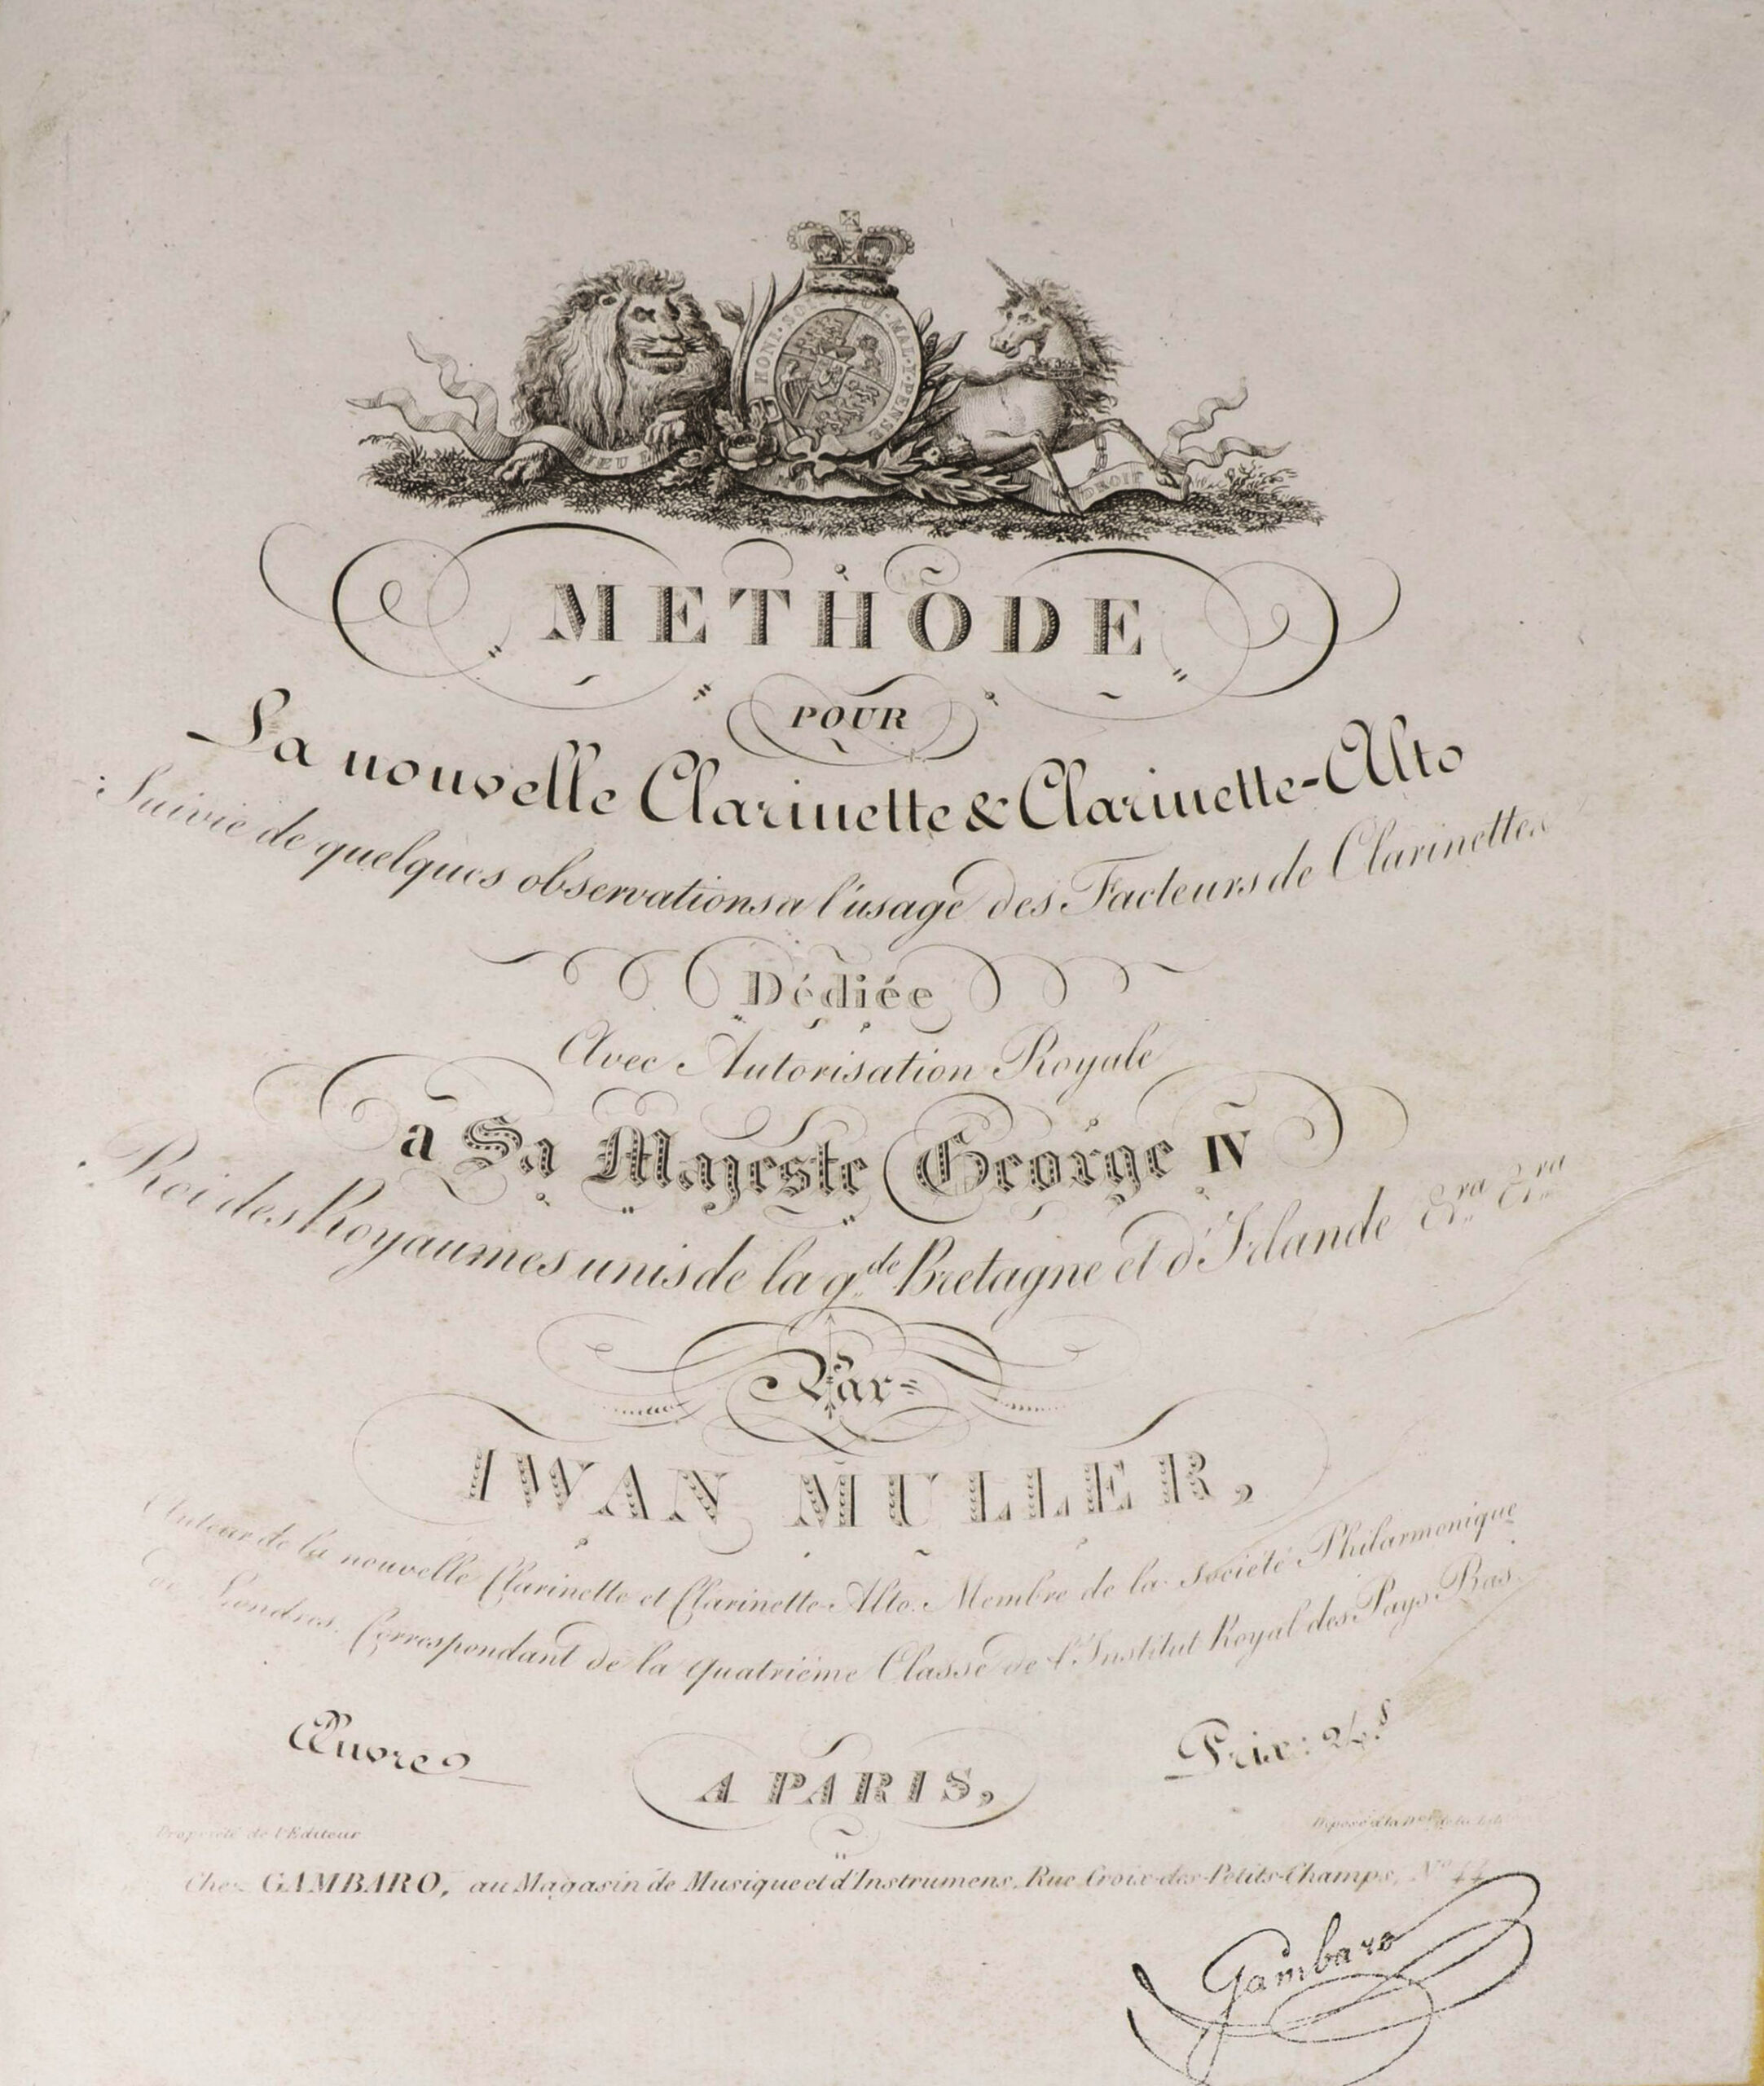 HONI·SOIT·QUI·MAL·Y·PENSE
DIEU ET MON DROIT
METHODE
POUR
La nouvelle Clarinette & Clarinette-Alto
Suivie de quelques observations a l'usage des Facteurs de Clarinettes
Dédiée
Avec Autorisation Royale
a Sa Majeste George IV
Roi des Royaumes unis de la gde Bretagne et d'Irlande &ra &ra
Par
IWAN MULLER,
Auteur de la nouvelle Clarinette et Clarinette-Alto. Membre de la Société Philarmonique
de Londres. Correspondant de la quatriéme Classe de l'Institut Royal des Pays-Bas.
Œuvre
Prix: 24.f
A PARIS,
Propriété de l'Editeur
Déposé à la
Chez GAMBARO, au Magasin de Musique et d'Instrumens, Rue Croix-des-Petits-Champs, No 44
Gambaro